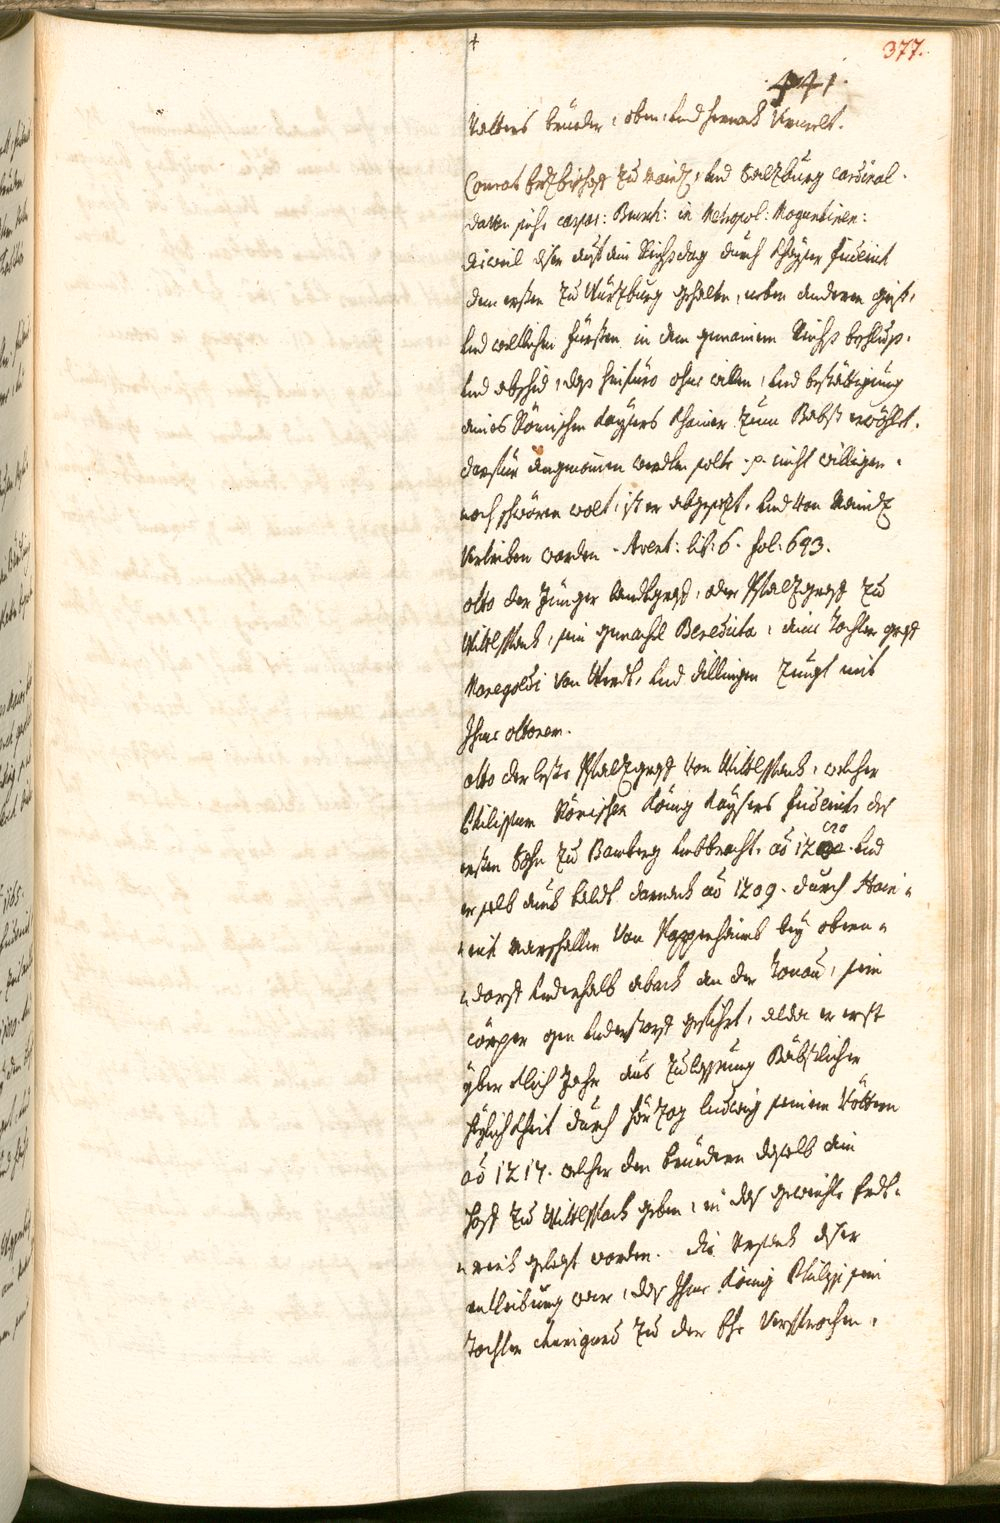 377.
441.
Vatters brueder, oben, und hernach Vermelt.
Conrat Erzbischoff zu Mainz, und Salzburg Cardinal.
davon sihe caspar: Brusch: in Metropol: Moguntinen:
dieweil diser auf dem Reichsdag durch Khayser Friderich
dem ersten zu Würzburg gehalten, neben anderen geist,
und weltlichen fürsten in dem gemainen Reichs beschluss,
und abschid, das hinfüro ohne willen, und bestättigung
aines Römischen Kaysers khainer zum Babst erwöhlt,
darfür angenomen werden solte .p. nicht willigen,
noch schwören wolt, ist er abgesezt, und von Mainz
Vertriben worden. Avent: lib: 6. fol: 693.
otto der Jünger landtgraff, oder Pfalzgraff zu
Wittelspach, sein gemachl Benedicta, aine tochter graff
Manegoldi von Werdt, und dillingen zeugt mit
Ihme ottonem.
otto der leste Pfalzgraff von Wittelspach, welcher
Philippum Römischen König Kaysers Friderichs des
ersten Sohn zu Bamberg umbbracht. aō 1208. und
er selb auch baldt darnach aō 1209. durch Hain-
-rich Marschallen von Pappenhaimb bey obern-
-dorff underhalb abach an der Tonau, sein
cörper gen Understorff gefiehrt, alda er erst
yber etlich Jahr aus zulassung Bäbstlicher
heylichkheit durch Herzog ludwig seinem Vöttern
aō 1217. welcher den bruedern daselb ein
hoff zu Wittelspach geben, in das geweichte Erdt-
-reich gelegt worden. die Ursach diser
entleibung war, das Ihme König Philipp sein
tochter Cunigund zu der Ehe Versprochen,